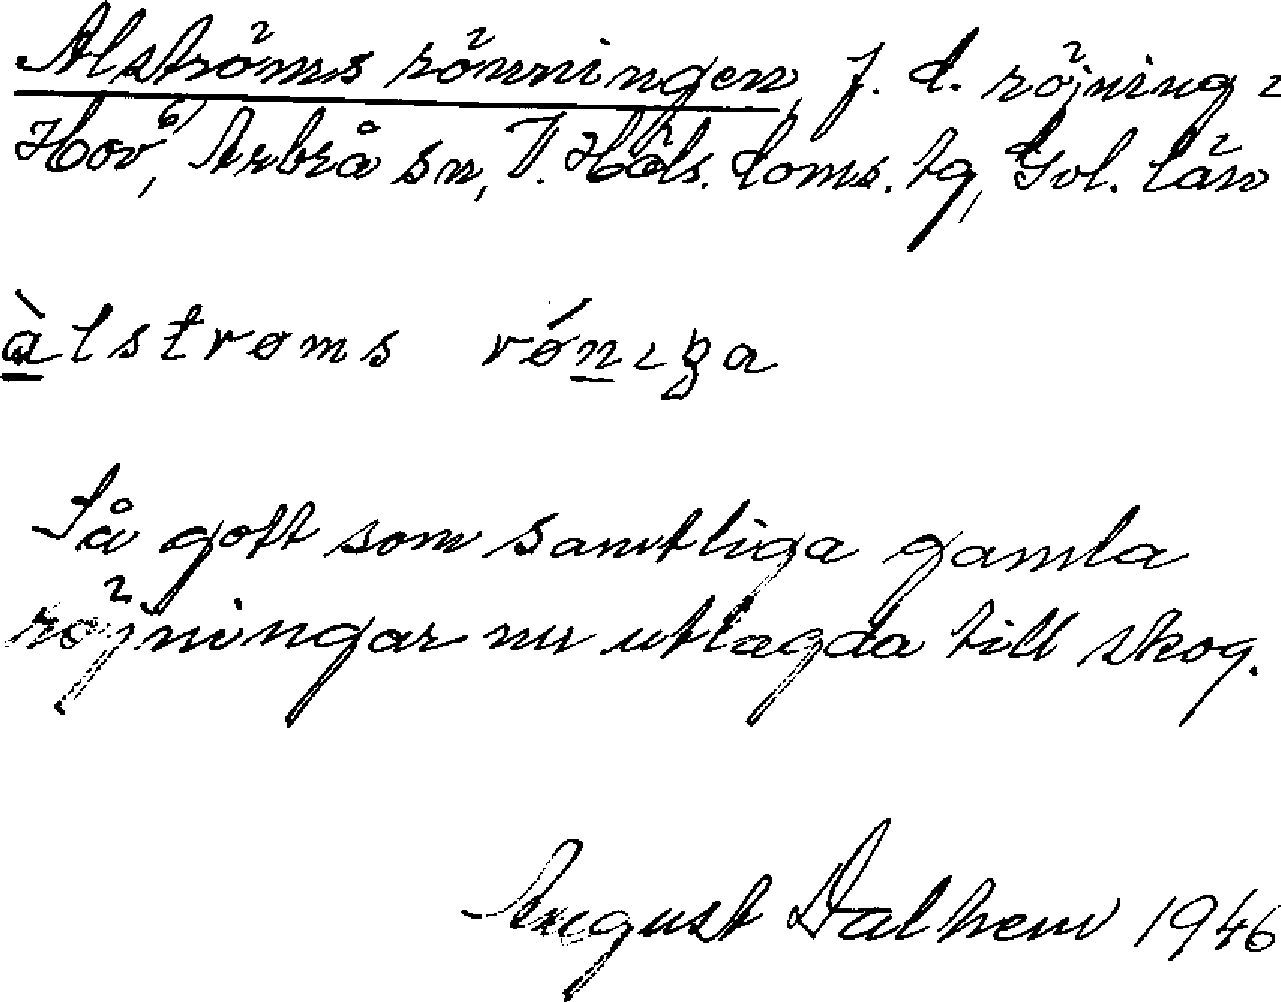 Alströms rönningen, f. d. röjning i
Hov⁶⁾, Arbrå sn, V. Häls. doms. tg, Gvl. län
àlstrøms rǿnıŋa
Så gott som samtliga gamla
röjningar nu utlagda till skog.
August Dalhem 1946